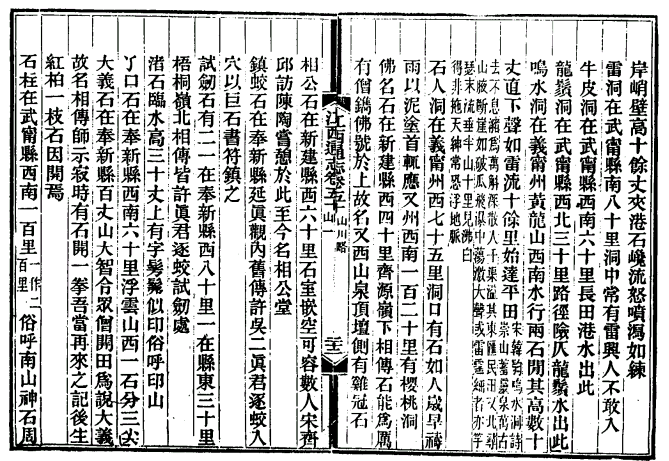 岸峭壁高十餘丈夾港石巉流怒噴瀉如練
雷洞在武甯縣南八十里洞中常有雷興人不敢入
牛皮洞在武甯縣西南六十里長田港水出此
龍鬚洞在武甯縣西北三十里路徑險仄龍鬚水出此
鳴水洞在義甯州黃龍山西南水行兩石閒其高數十
丈直下聲如雷流十餘里始達平田
宋韓駒鳴水洞詩
石人洞在義甯州西七十五里洞口有石如人歲旱禱
雨以泥塗首輒應又州西南一百二十里有櫻桃洞
佛名石在新建縣西四十里齊源嶺下相傳石能爲厲
有僧鐫佛號於上故名又西山泉頂壇側有雞冠石
江西通志卷五十 山川略 山一
相公石在新建縣西六十里石室嵌空可容數人宋齊
邱訪陳陶嘗憩於此至今名相公堂
鎮蛟石在奉新縣延眞觀內舊傳許吳二眞君逐蛟入
穴以巨石書符鎮之
試劒石有二一在奉新縣西八十里一在縣東三十里
梧桐嶺北相傳皆許眞君逐蛟試劒處
渚石臨水高三十丈上有字髣髴似印俗呼印山
丫口石在奉新縣西南六十里浮雲山西一石分三尖
大義石在奉新縣百丈山大智令眾僧開田爲說大義
故名相傳師示寂時有石開一拳吾當再來之記後生
紅柏一枝石因開焉
石柱在武甯縣西南一百里一作二百里俗呼南山神石周